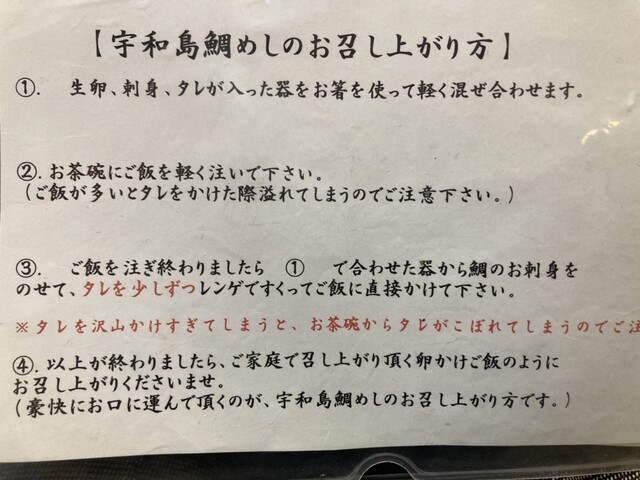 【宇和島鯛めしのお召し上がり方】
①. 生卵、刺身、タレが入った器をお箸を使って軽く混ぜ合わせます。
②. お茶碗にご飯を軽く注いで下さい。
(ご飯が多いとタレをかけた際溢れてしまうのでご注意下さい。)
③. ご飯を注ぎ終わりましたら ① で合わせた器から鯛のお刺身を
のせて、タレを少しずつレンゲですくってご飯に直接かけて下さい。
※タレを沢山かけすぎてしまうと、お茶碗からタレがこぼれてしまうのでご注
④. 以上が終わりましたら、ご家庭で召し上がり頂く卵かけご飯のように
お召し上がりくださいませ。
(豪快にお口に運んで頂くのが、宇和島鯛めしのお召し上がり方です。)